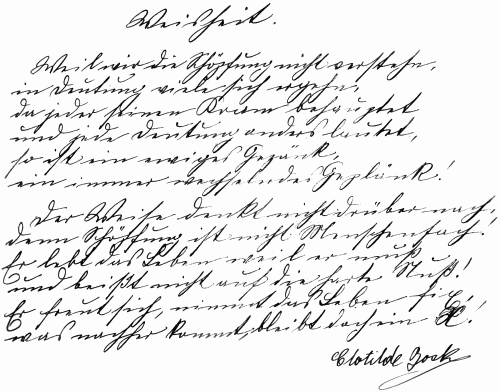 Weisheit.
Weil wir die Schöpfung nicht verstehn,
in Deutung viele sich ergehn,
da jeder seinen Kram behauptet
und jede Deutung anders lautet,
so ist ein ewiges Gezänk,
ein immer wechselndes Geplänk!
Der Weise denkt nicht drüber nach,
denn Schöpfung ist nicht Menschenfach!
Er lebt das Leben weil er muß
und beißt nicht auf die harte Nuß!
Er freut sich, nimmt das Leben fix
was nachher kommt, bleibt doch ein X!
Clotilde